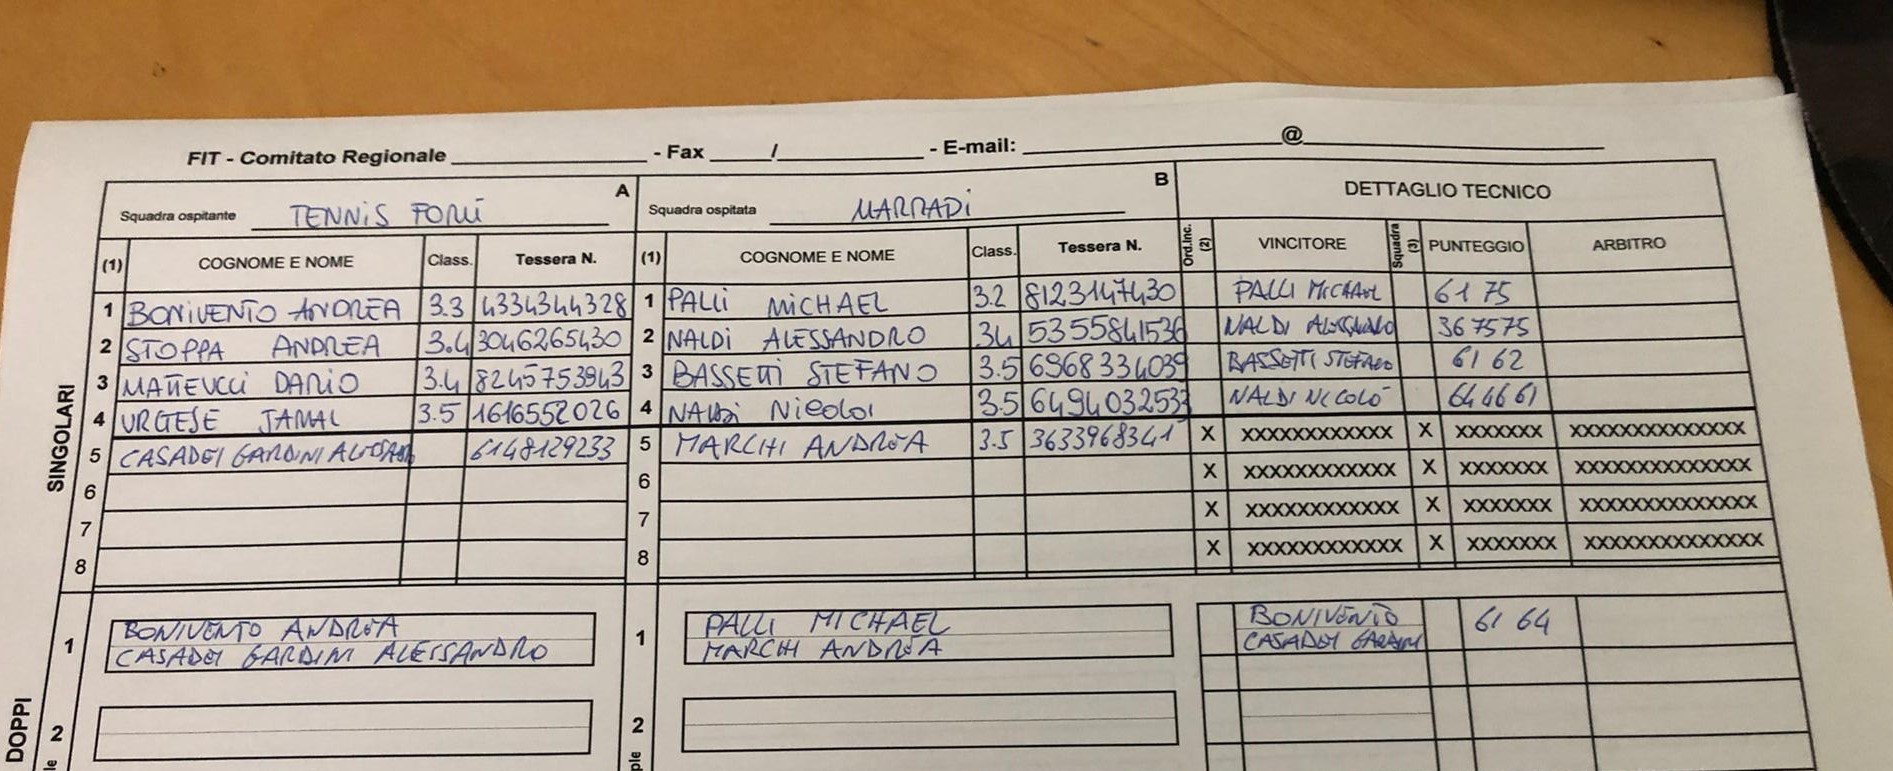 FIT - Comitato Regionale ____________ - Fax _____/____________ - E-mail: ____________@____________
Squadra ospitante TENNIS FORLÌ A Squadra ospitata MARRADI B DETTAGLIO TECNICO
(1) COGNOME E NOME Class. Tessera N. (1) COGNOME E NOME Class. Tessera N. Ord.Inc. (2) VINCITORE Squadra (3) PUNTEGGIO ARBITRO
SINGOLARI
1 BONIVENTO ANDREA 3.3 4334344328 1 PALLI MICHAEL 3.2 8123147430 PALLI MICHAEL 61 75
2 STOPPA ANDREA 3.4 3046265430 2 NALDI ALESSANDRO 34 5355841536 NALDI ALESSANDRO 36 75 75
3 MATTEUCCI DARIO 3.4 8245753943 3 BASSETTI STEFANO 3.5 6968334039 BASSETTI STEFANO 61 62
4 URGESE JAMAL 3.5 1616552026 4 NALDI 3.5 6494032533 NALDI NICOLÒ 64 46 61
5 CASADEI GARDINI 6148129233 5 MARCHI ANDREA 3.5 3633968341 X XXXXXXXXXXXX X XXXXXXX XXXXXXXXXXXXXX
6 6 X XXXXXXXXXXXX X XXXXXXX XXXXXXXXXXXXXX
7 7 X XXXXXXXXXXXX X XXXXXXX XXXXXXXXXXXXXX
8 8 X XXXXXXXXXXXX X XXXXXXX XXXXXXXXXXXXXX
DOPPI
1 BONIVENTO ANDREA 1 PALLI MICHAEL BONIVENTO 61 64
CASADEI GARDINI ALESSANDRO MARCHI ANDREA CASADEI GARDINI
2 2
le ple